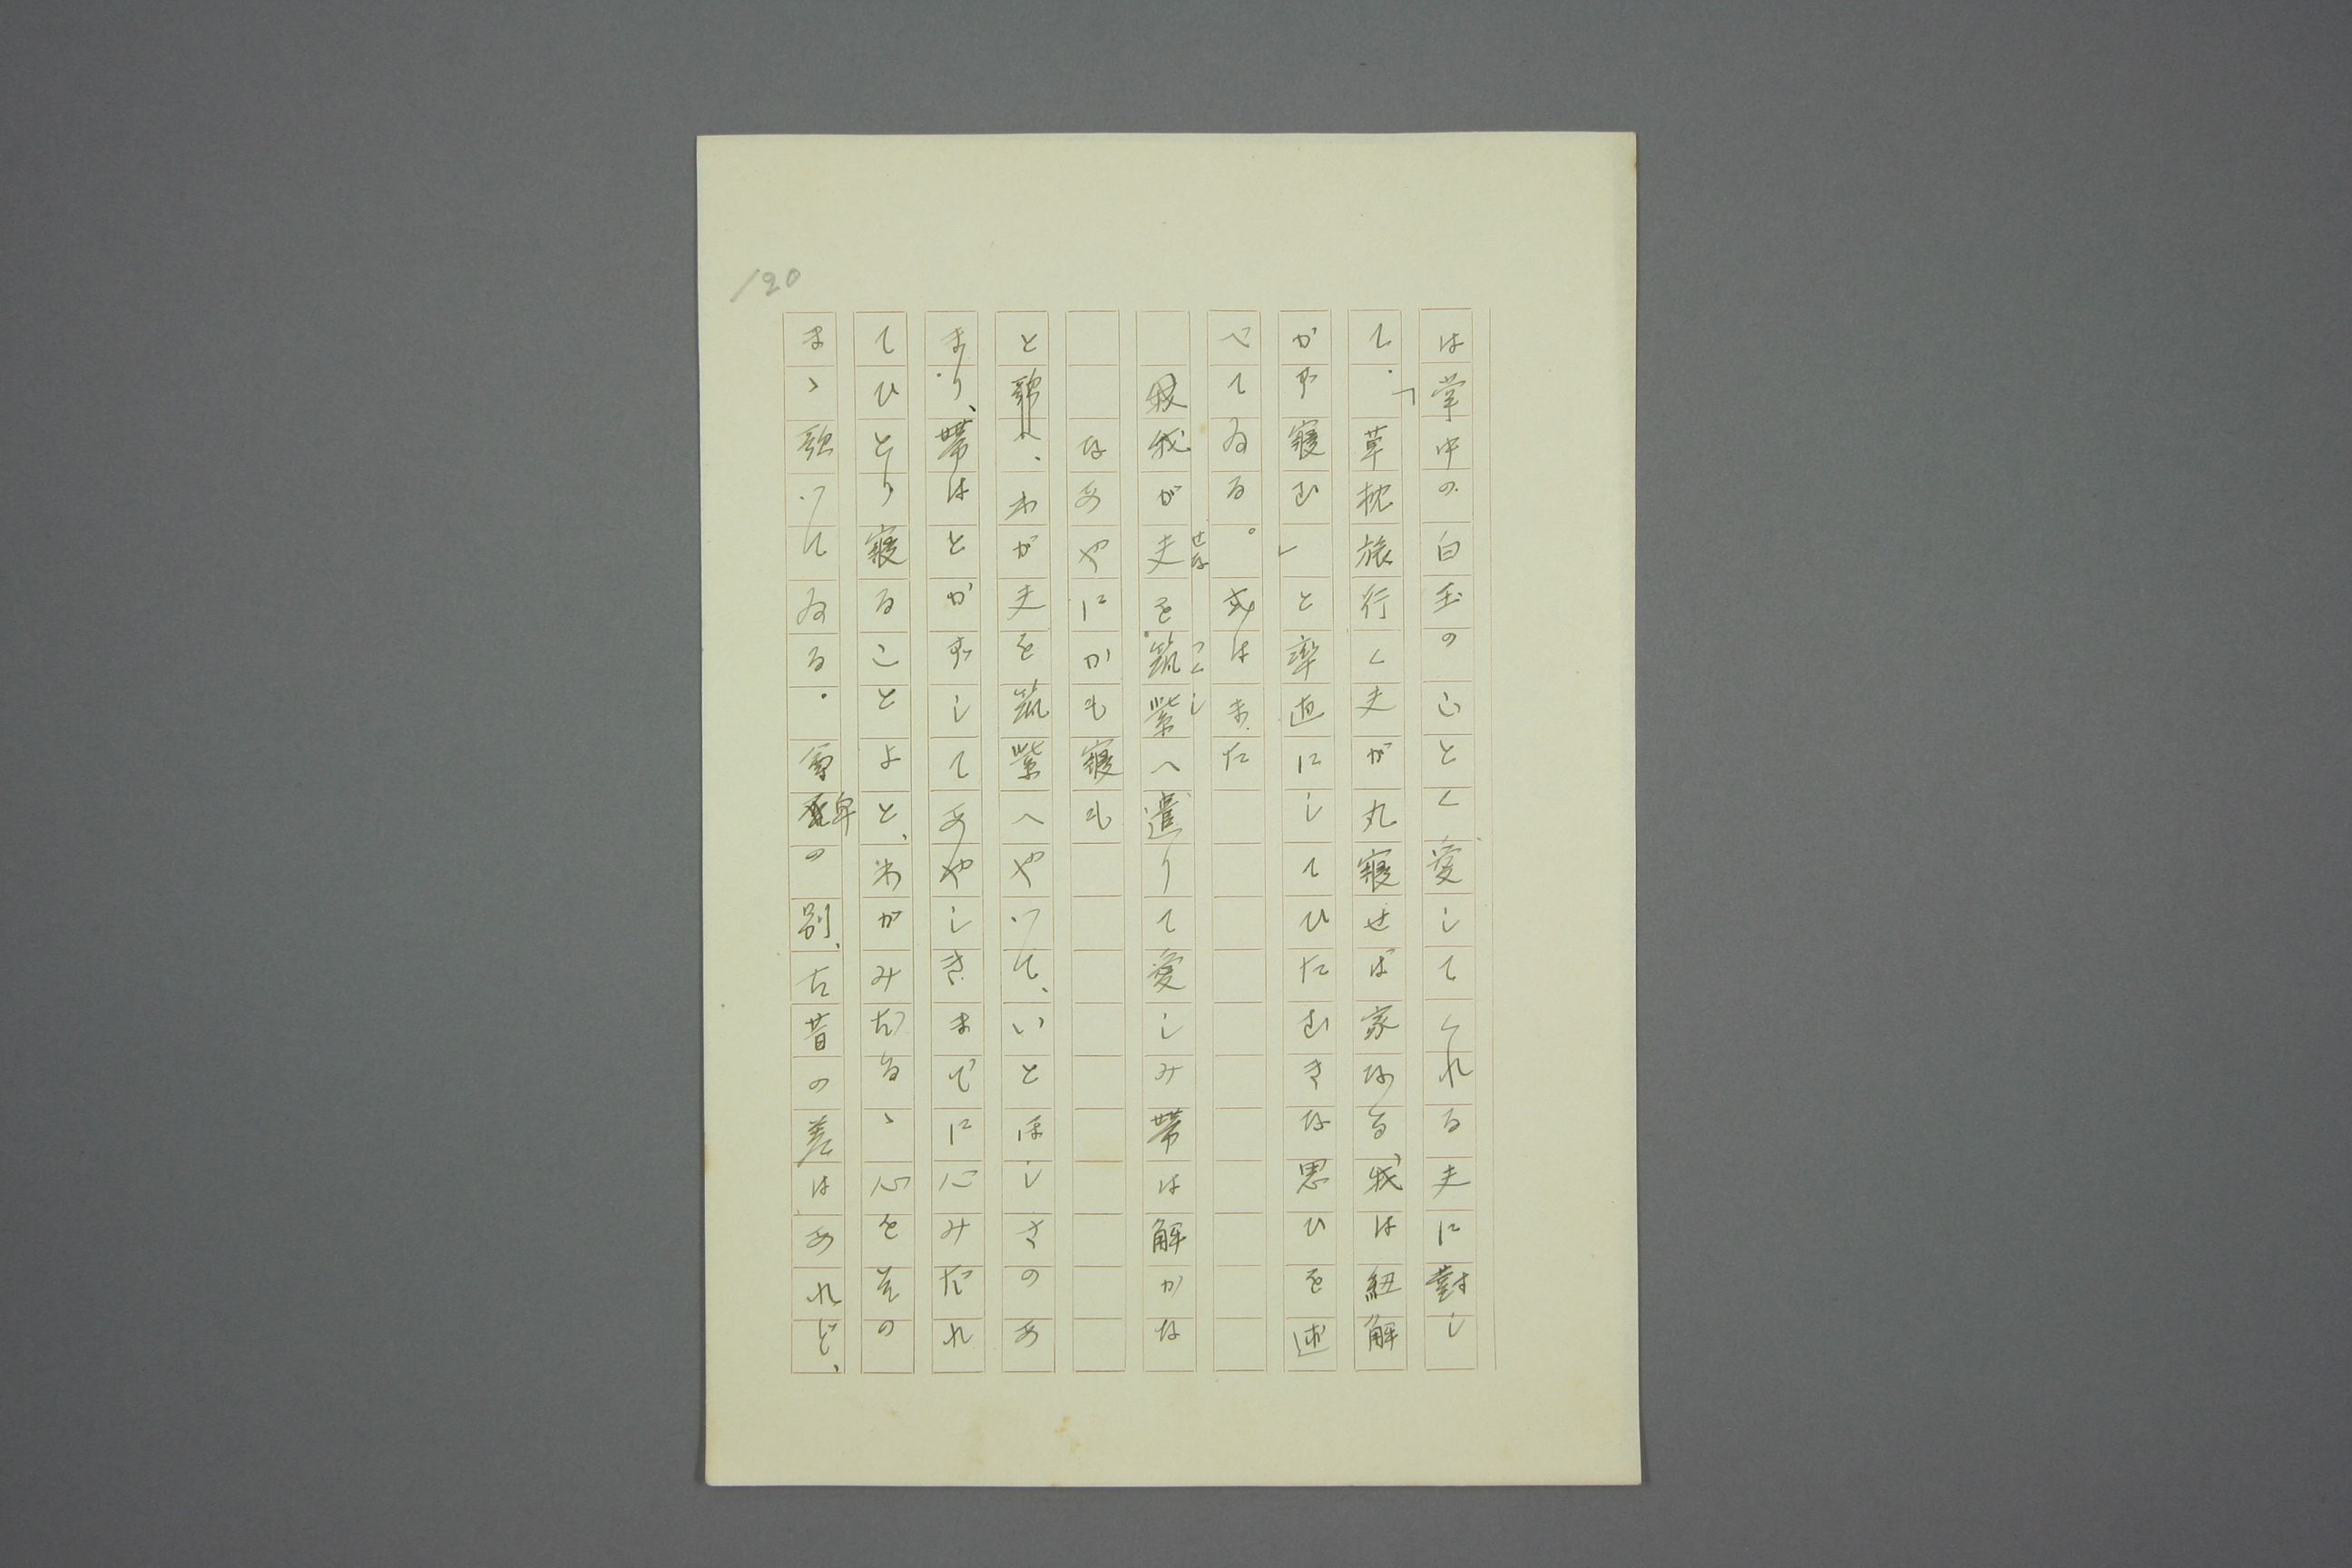 120
は掌中の白玉のごとく愛してくれる夫に對し
て、「草枕旅行く夫が丸寢せば家なる我は紐解
かず寢む」と率直にしてひたむきな思ひを述
べてゐる。或はまた
我が夫を筑紫へ遣りて愛しみ帶は解かな
なあやにかも寢も
と歌へ、わが夫を筑紫へやつて、いとほしさのあ
まり、帶はとかずしてあやしきまでに心みだれ
てひとり寢ることよと、わがみだるゝ心をその
まゝ歌つてゐる。尊卑の別、古昔の差はあれど、
せな
つくし